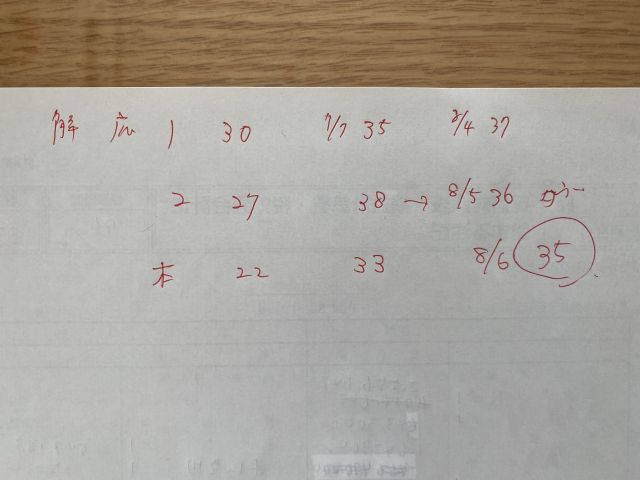 解 応 1 30 7/7 35 8/4 37
2 27 38 → 8/5 36
本 22 33 8/6 35